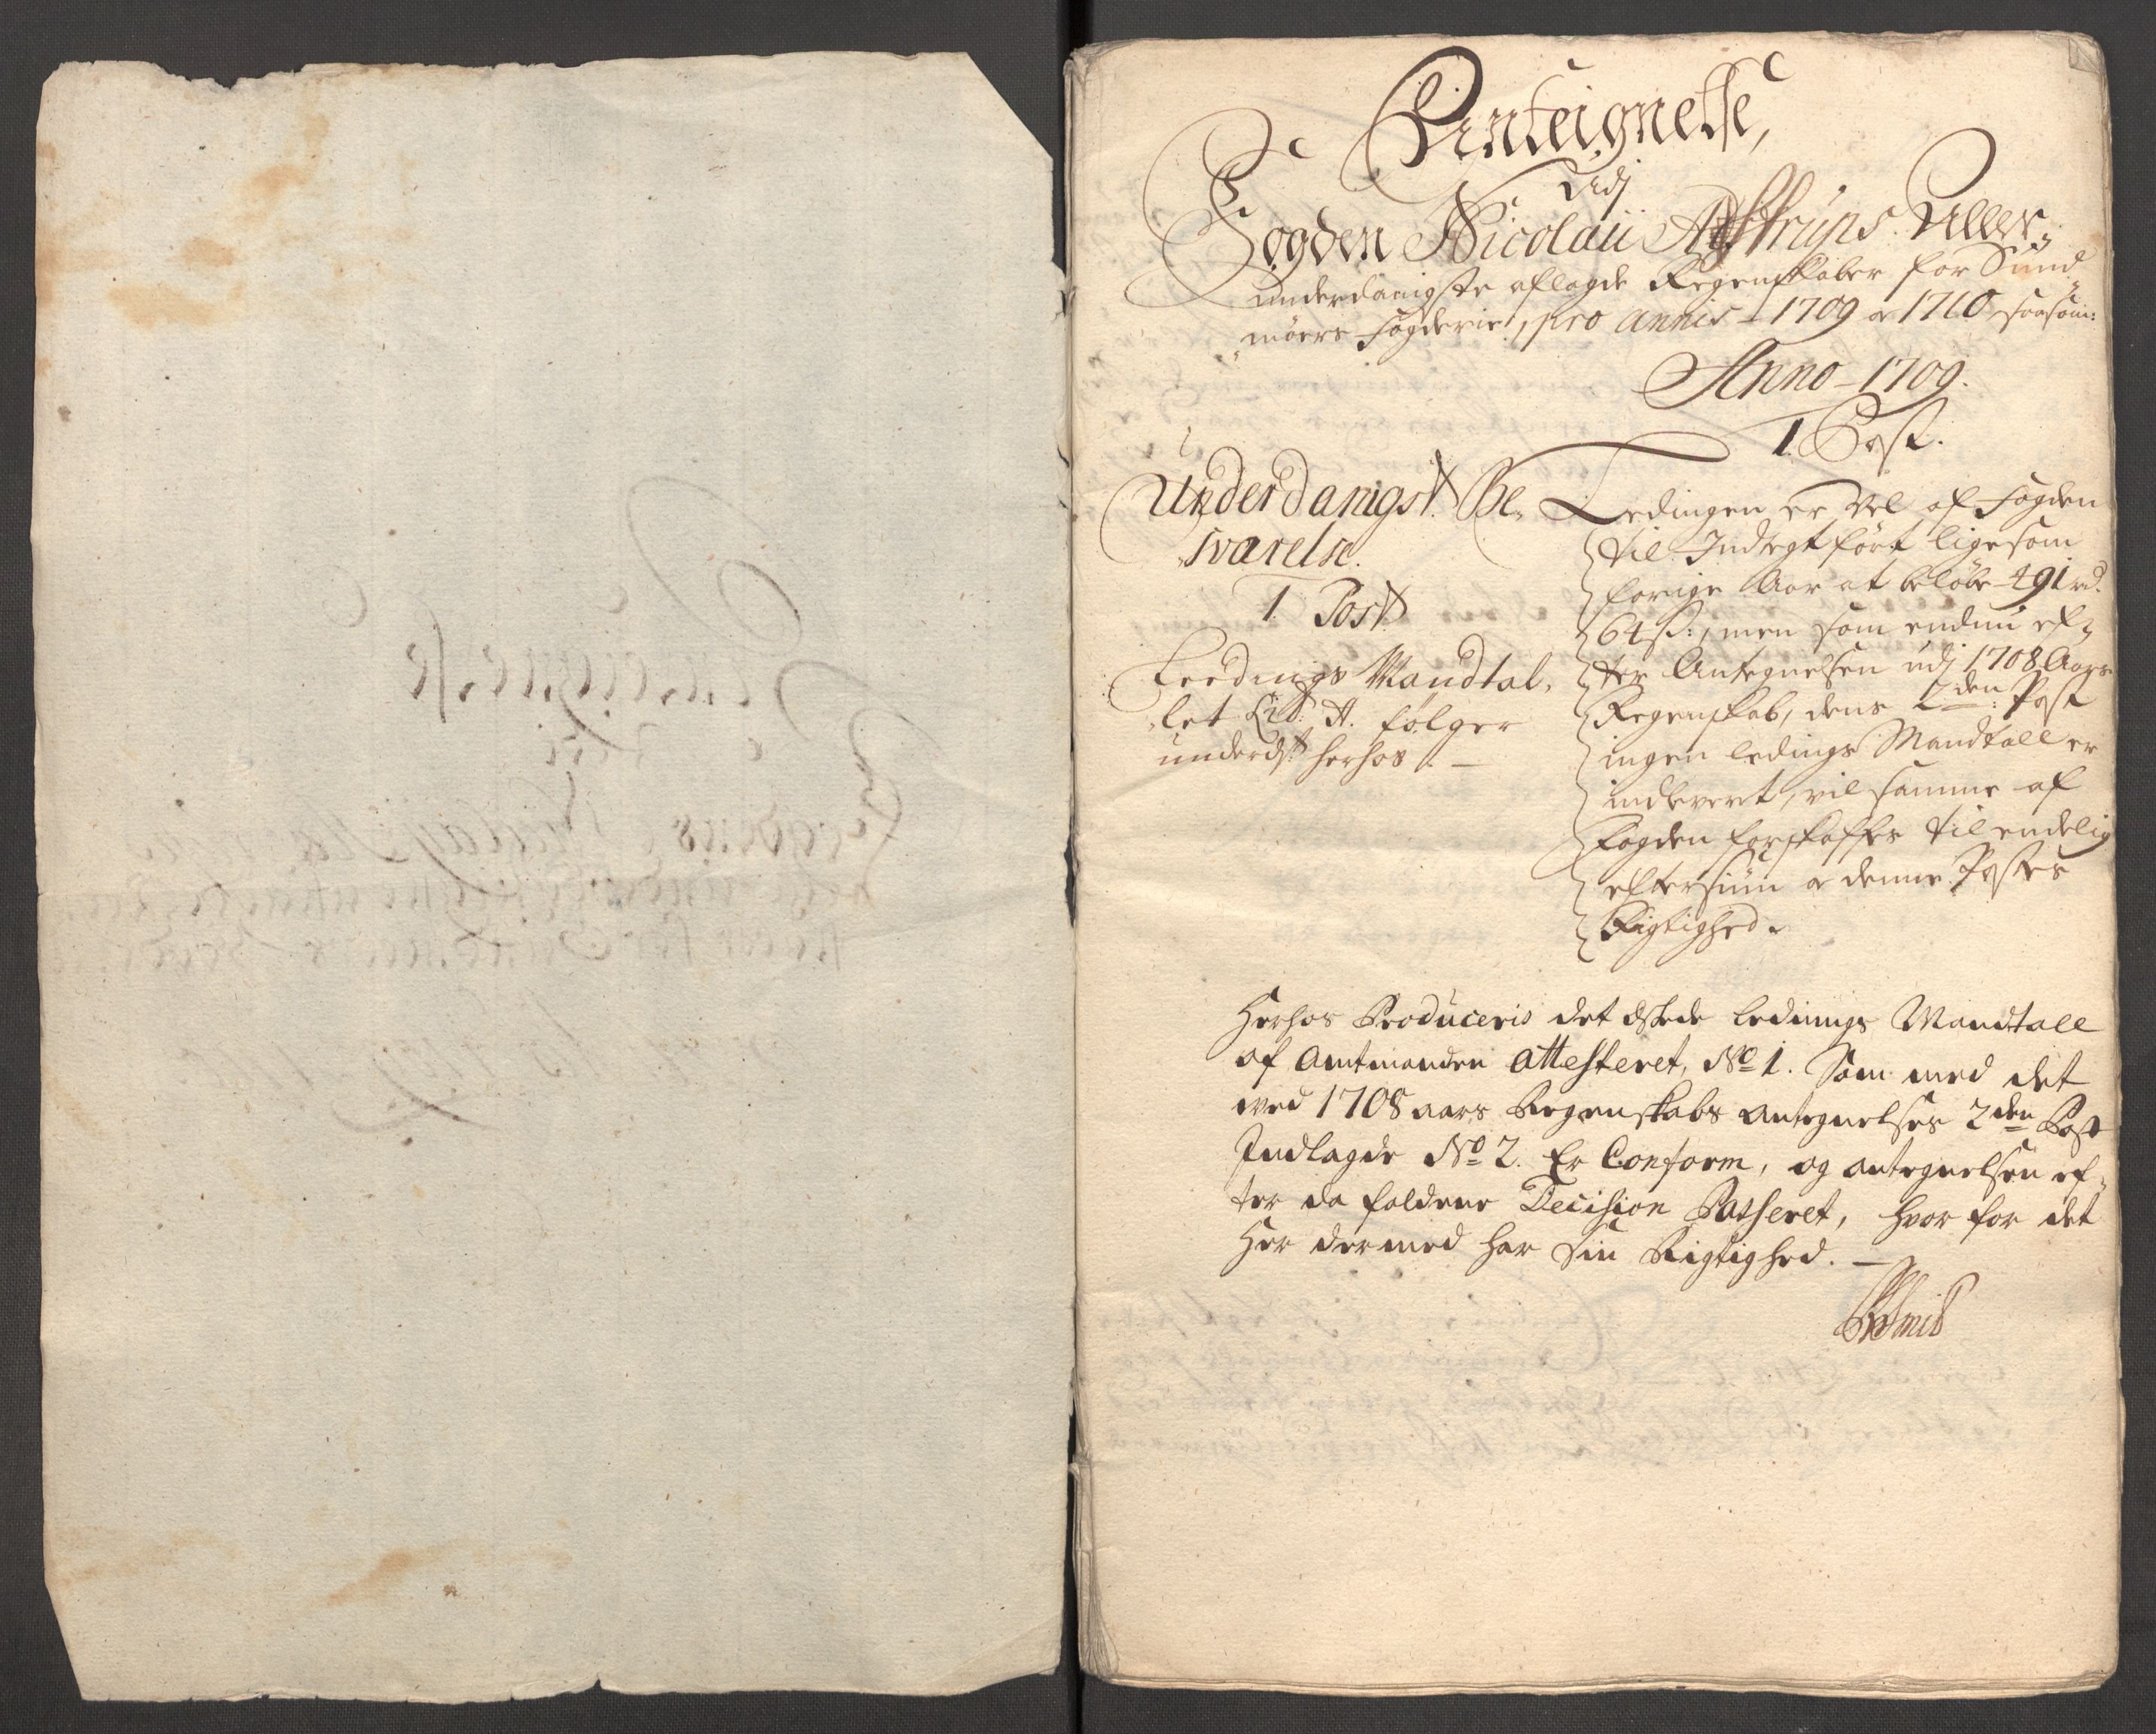 Anteignelse,
Udj
Fogden Nicolaii Astrups Aller,,
underdanigste aflagde Regenskaber for Sund,,
møers Fogderie, pro Annis 1709 & 1710 saasom:
Anno 1709.
1. Post.
Underdanigst. Be,,
svarelse.
1. Post
Leedings Mandtal,,
let Lit: A. følger
underdst herhos. —
Ledingen er vel af Fogden
til Indtegt ført ligesom
forige Aar at beløbe 491 rd.
64 s:, men som endnu ef,,
ter Antegnelsen udj 1708 Aars
Regenskab, dens 2den: Post
ingen ledings Mandtall er
indlevert, vil samme af
Fogden forskaffes til endelig
eftersiun & denne Postes
Rigtighed.
Herhos Produceris det Leedings Mandtall
af Amtmanden Attesteret, No 1. Som med det
ved 1708 aars Regenskabs Antegnelses 2den Post
Indlagde No 2. Er Conform, og antegnelsen ef,,
ter da faldene Decision Passeret, hvor for det
Her dermed har sin Rigtighed. —